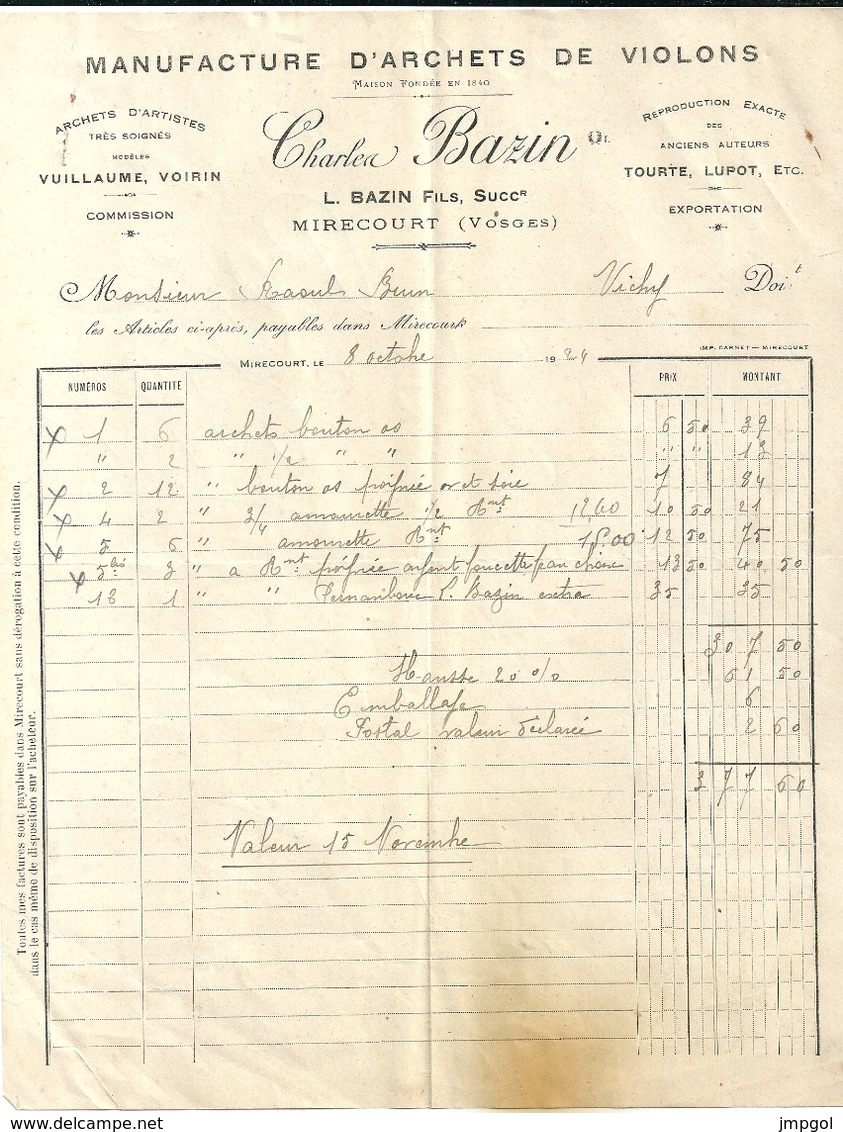 MANUFACTURE D'ARCHETS DE VIOLONS
MAISON FONDÉE EN 1840
ARCHETS D'ARTISTES
TRÈS SOIGNÉS
MODÈLES
VUILLAUME, VOIRIN
COMMISSION
Charles Bazin
L. BAZIN FILS, SUCCR
MIRECOURT (VOSGES)
REPRODUCTION EXACTE
DES
ANCIENS AUTEURS
TOURTE, LUPOT, ETC.
EXPORTATION
Monsieur Raoul Brun Vichy Doit
les Articles ci-après, payables dans Mirecourt
IMP. CARNET — MIRECOURT
MIRECOURT, LE 8 octobre 1924
NUMÉROS QUANTITÉ PRIX MONTANT
1 6 archets bouton os 6 50 39
" 2 " 1/2 " " " " 13
2 12 " bouton os poignée or et soie 7 84
4 2 " 3/4 amourette 1/2 Rnt 12.60 10 50 21
5 6 " amourette Rnt 15.00 12 50 75
5bis 3 " a Rnt poignée argent peau choix 13 50 40 50
13 1 " " L. Bazin extra 35 35
307 50
Hausse 20 % 61 50
Emballage 6
Postal valeur déclarée 2 60
377 60
Valeur 15 Novembre
Toutes mes factures sont payables dans Mirecourt sans dérogation à cette condition.
dans le cas même de disposition sur l'acheteur.
www.delcampe.net
jmpgol